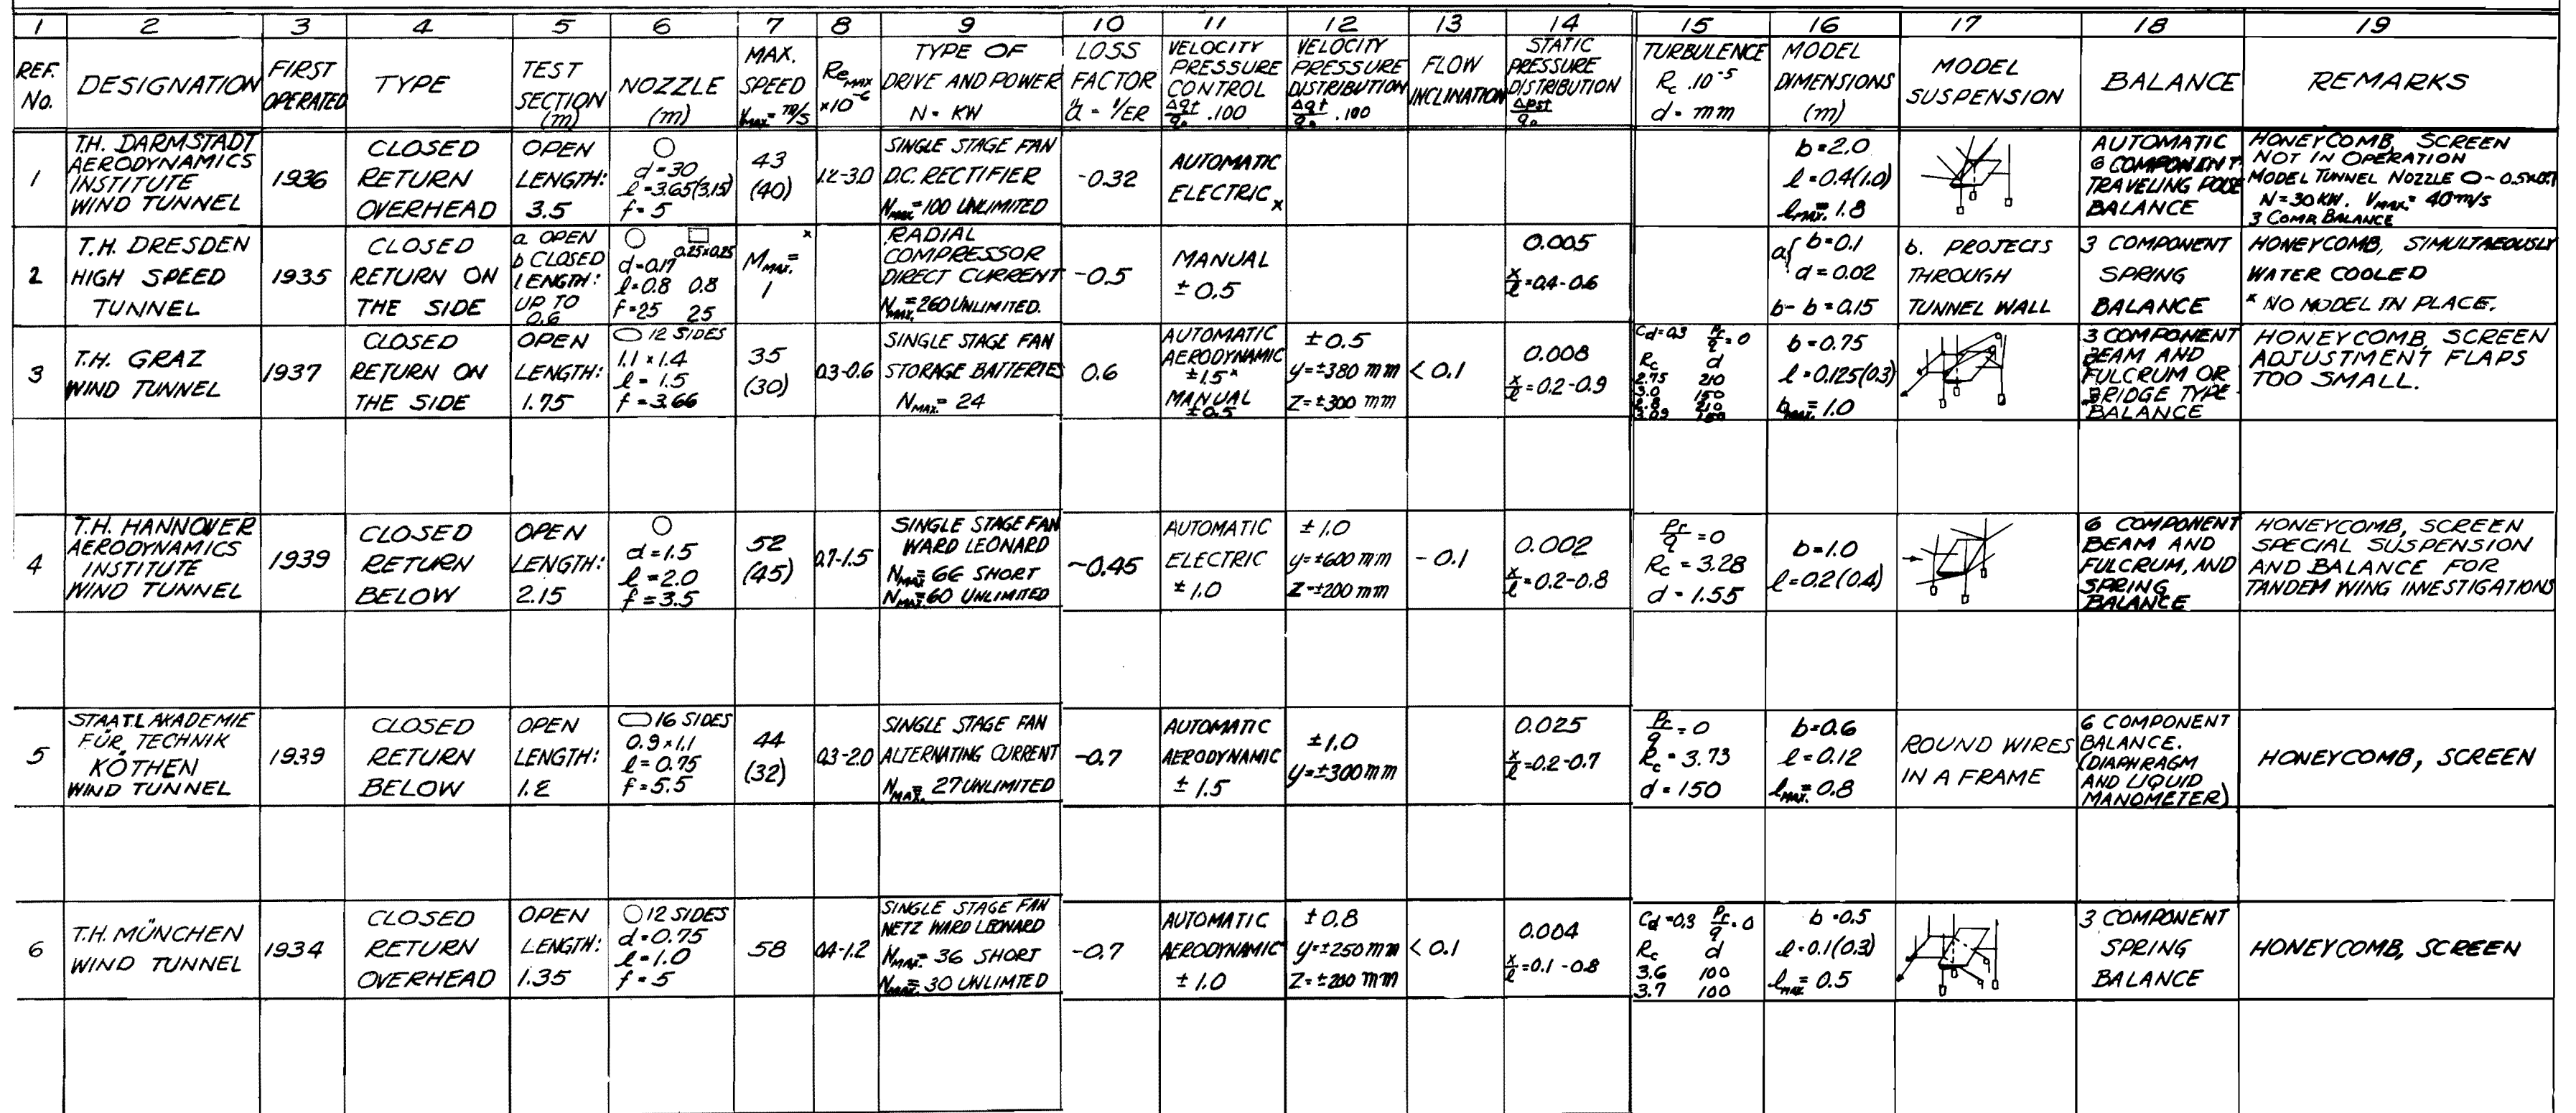 1 2 3 4 5 6 7 8 9 10 11 12 13 14 15 16 17 18 19
REF. No.
DESIGNATION
FIRST OPERATED
TYPE
TEST SECTION (m)
NOZZLE (m)
MAX. SPEED Vmax. = m/s
Re MAX ×10⁻⁶
TYPE OF DRIVE AND POWER N = KW
LOSS FACTOR = 1/ER
VELOCITY PRESSURE CONTROL Δqt/q₀ .100
VELOCITY PRESSURE DISTRIBUTION Δqt/q₀ .100
FLOW INCLINATION
STATIC PRESSURE DISTRIBUTION Δpst/q₀
TURBULENCE Rc .10⁻⁵ d = mm
MODEL DIMENSIONS (m)
MODEL SUSPENSION
BALANCE
REMARKS
1
T.H. DARMSTADT
AERODYNAMICS
INSTITUTE
WIND TUNNEL
1936
CLOSED
RETURN
OVERHEAD
OPEN
LENGTH:
3.5
d = 30
l = 3.65(3.15)
f = 5
43
(40)
1.2-3.0
SINGLE STAGE FAN
D.C. RECTIFIER
NMAX. = 100 UNLIMITED
-0.32
AUTOMATIC
ELECTRIC x
b = 2.0
l = 0.4(1.0)
lMAX. = 1.8
AUTOMATIC
6 COMPONENT
TRAVELING
BALANCE
HONEYCOMB, SCREEN
NOT IN OPERATION
MODEL TUNNEL NOZZLE
N = 30 KW. VMAX. = 40 m/s
3 COMP. BALANCE
2
T.H. DRESDEN
HIGH SPEED
TUNNEL
1935
CLOSED
RETURN ON
THE SIDE
a OPEN
b CLOSED
LENGTH:
UP TO
0.6
0.25×0.25
d = 0.17
l = 0.8 0.8
f = 25 25
x
MMAX. =
1
RADIAL
COMPRESSOR
DIRECT CURRENT
NMAX. = 260 UNLIMITED.
-0.5
MANUAL
± 0.5
0.005
x/l = 0.4-0.6
a{ b = 0.1
d = 0.02
b- b = 0.15
b. PROJECTS
THROUGH
TUNNEL WALL
3 COMPONENT
SPRING
BALANCE
HONEYCOMB, SIMULTAEOUSLY
WATER COOLED
x NO MODEL IN PLACE.
3
T.H. GRAZ
WIND TUNNEL
1937
CLOSED
RETURN ON
THE SIDE
OPEN
LENGTH:
1.75
12 SIDES
1.1 × 1.4
l = 1.5
f = 3.66
35
(30)
0.3-0.6
SINGLE STAGE FAN
STORAGE BATTERIES
NMAX. = 24
0.6
AUTOMATIC
AERODYNAMIC
±1.5 x
MANUAL
±0.5
± 0.5
y = ±380 mm
Z = ±300 mm
< 0.1
0.008
x/l = 0.2-0.9
Cd = 0.3 Pr/q = 0
Rc d
2.75 210
3.0 150
210
3.09
b = 0.75
l = 0.125(0.3)
bMAX. = 1.0
3 COMPONENT
BEAM AND
FULCRUM OR
BRIDGE TYPE
BALANCE
HONEYCOMB, SCREEN
ADJUSTMENT FLAPS
TOO SMALL.
4
T.H. HANNOVER
AERODYNAMICS
INSTITUTE
WIND TUNNEL
1939
CLOSED
RETURN
BELOW
OPEN
LENGTH:
2.15
d = 1.5
l = 2.0
f = 3.5
52
(45)
0.7-1.5
SINGLE STAGE FAN
WARD LEONARD
NMAX. = 66 SHORT
NMAX. = 60 UNLIMITED
~0.45
AUTOMATIC
ELECTRIC
± 1.0
± 1.0
y = ±600 mm
Z = ±200 mm
- 0.1
0.002
x/l = 0.2-0.8
Pr/q = 0
Rc = 3.28
d = 1.55
b = 1.0
l = 0.2(0.4)
6 COMPONENT
BEAM AND
FULCRUM, AND
SPRING
BALANCE
HONEYCOMB, SCREEN
SPECIAL SUSPENSION
AND BALANCE FOR
TANDEM WING INVESTIGATIONS
5
STAATL AKADEMIE
FÜR TECHNIK
KÖTHEN
WIND TUNNEL
1939
CLOSED
RETURN
BELOW
OPEN
LENGTH:
16 SIDES
0.9 × 1.1
l = 0.75
f = 5.5
44
(32)
0.3-2.0
SINGLE STAGE FAN
ALTERNATING CURRENT
NMAX. = 27 UNLIMITED
-0.7
AUTOMATIC
AERODYNAMIC
± 1.5
±1.0
y = ±300 mm
0.025
x/l = 0.2-0.7
Pr/q = 0
Rc = 3.73
d = 150
b = 0.6
l = 0.12
lMAX. = 0.8
ROUND WIRES
IN A FRAME
6 COMPONENT
BALANCE.
(DIAPHRAGM
AND LIQUID
MANOMETER)
HONEYCOMB, SCREEN
6
T.H. MÜNCHEN
WIND TUNNEL
1934
CLOSED
RETURN
OVERHEAD
OPEN
LENGTH:
1.35
12 SIDES
d = 0.75
l = 1.0
f = 5
58
0.4-1.2
SINGLE STAGE FAN
NETZ WARD LEONARD
NMAX. = 36 SHORT
NMAX. = 30 UNLIMTED
-0.7
AUTOMATIC
AERODYNAMIC
± 1.0
± 0.8
y = ±250 mm
Z = ±200 mm
< 0.1
0.004
x/l = 0.1-0.8
Cd = 0.3 Pr/q = 0
Rc d
3.6 100
3.7 100
b = 0.5
l = 0.1(0.3)
lMAX = 0.5
3 COMPONENT
SPRING
BALANCE
HONEYCOMB, SCREEN